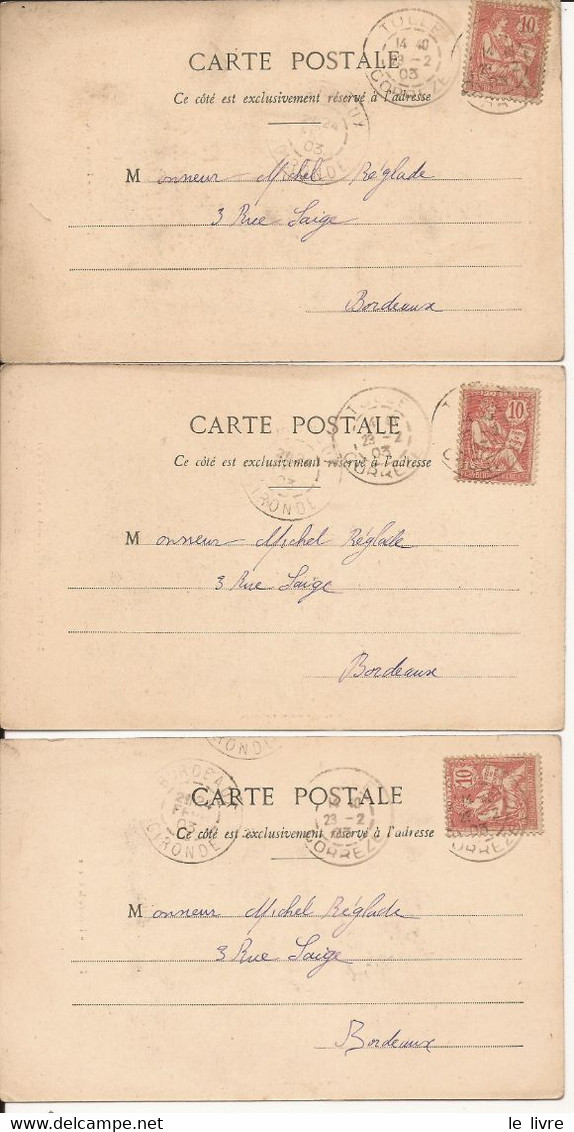 TULLE
14 40
23 -2
03
CORREZE
10
CARTE POSTALE
Ce côté est exclusivement réservé à l'adresse
03
Monsieur Michel Réglade
3 Rue Saige
Bordeaux
TULLE
23 -2
03
CORREZE
10
CARTE POSTALE
Ce côté est exclusivement réservé à l'adresse
03
GIRONDE
Monsieur Michel Réglade
3 Rue Saige
Bordeaux
BORDEAUX
03
GIRONDE
14 40
23 -2
03
CORREZE
10
CORREZE
CARTE POSTALE
Ce côté est exclusivement réservé à l'adresse
Monsieur Michel Réglade
3 Rue Saige
Bordeaux
Delcampe.net
le livre